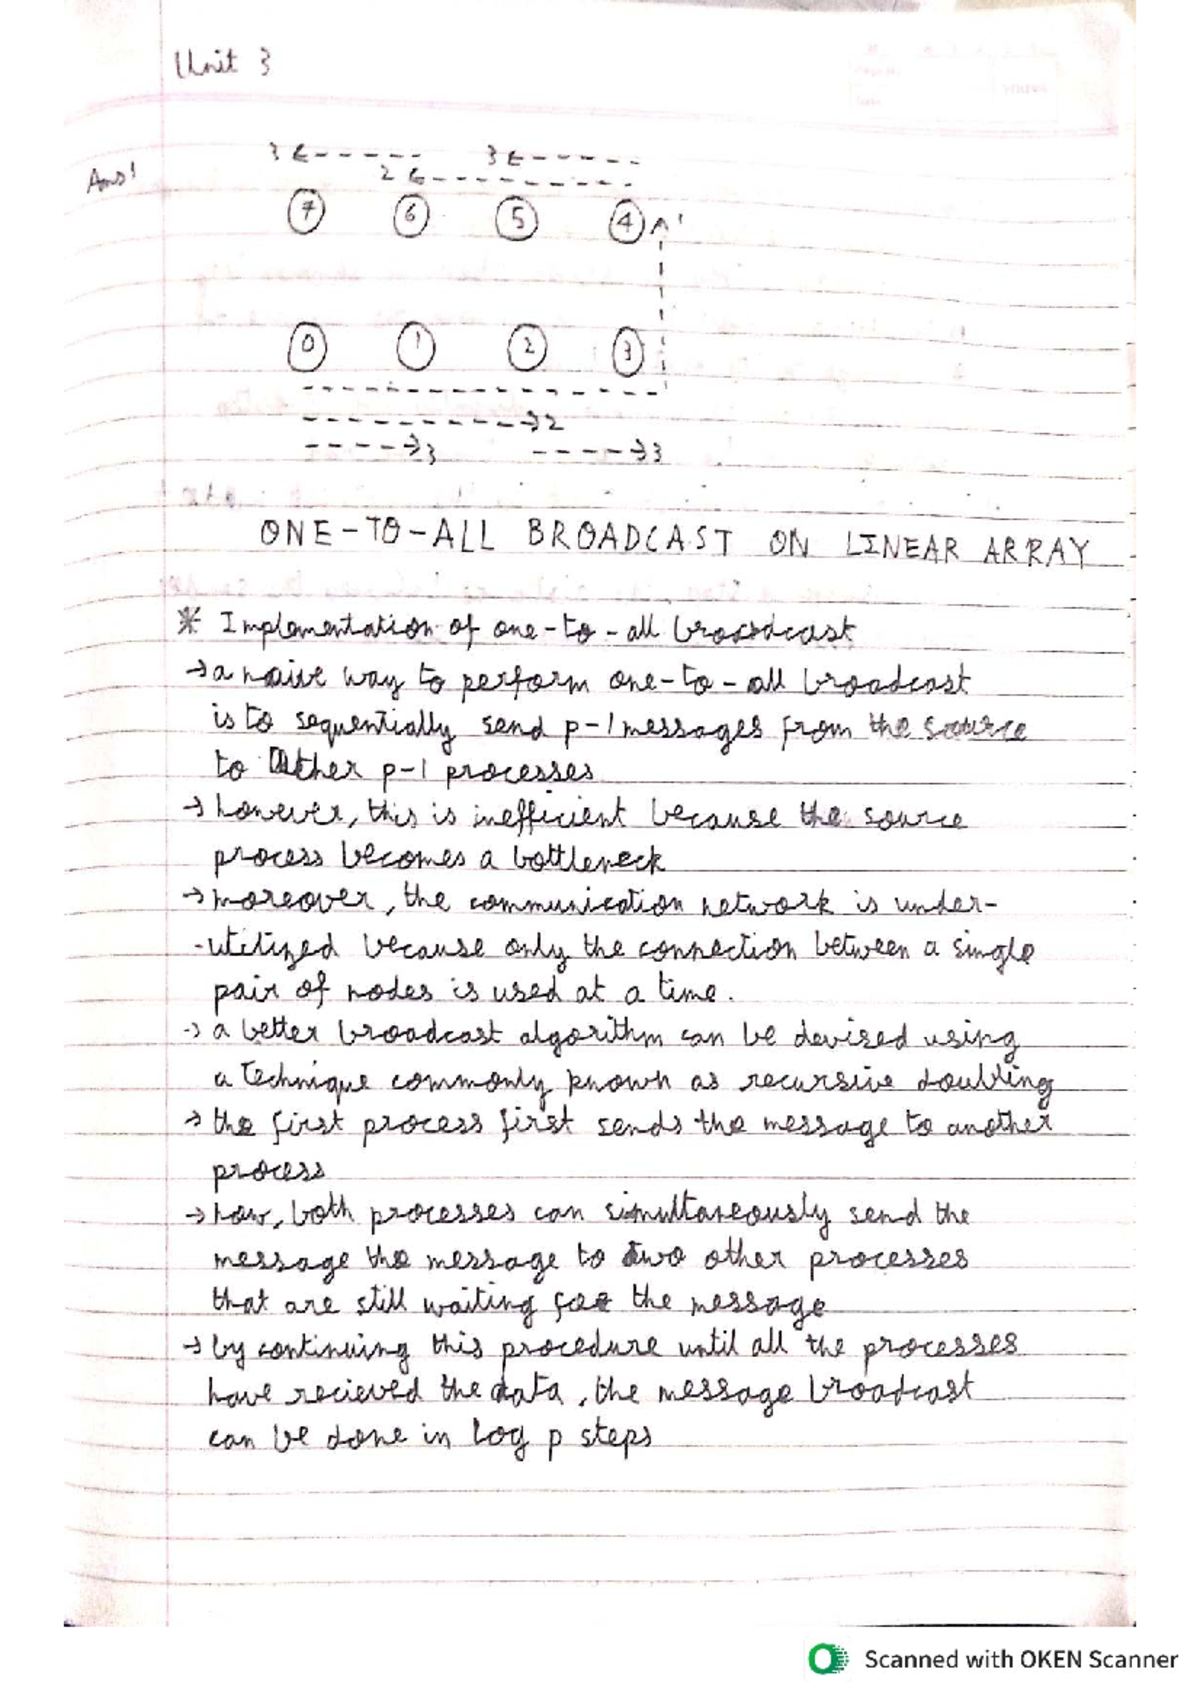 Unit 3
Ans 1
3 3
2
7 6 5 4 1
0 1 2 3
2
3 3
ONE-TO-ALL BROADCAST ON LINEAR ARRAY
* Implementation of one-to-all broadcast
→ a naive way to perform one-to-all broadcast
is to sequentially send p-1 messages from the source
to Other p-1 processes
→ however, this is inefficient because the source
process becomes a bottleneck
→ moreover, the communication network is under-
-utilized because only the connection between a single
pair of nodes is used at a time.
→ a better broadcast algorithm can be devised using
a technique commonly known as recursive doubling
→ the first process first sends the message to another
process
→ now, both processes can simultaneously send the
message the message to two other processes
that are still waiting for the message
→ by continuing this procedure until all the processes
have recieved the data, the message broadcast
can be done in log p steps
Scanned with OKEN Scanner